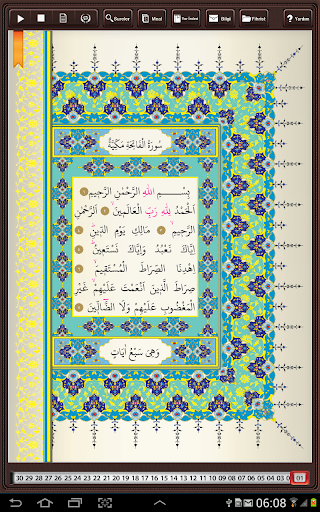 Sureler
Meal
Yer İmleri
Bilgi
Fihrist
Yardım
سُورَةُ الْفَاتِحَةِ مَكِّيَّةٌ
بِسْمِ اللّٰهِ الرَّحْمٰنِ الرَّحِيمِ
اَلْحَمْدُ لِلّٰهِ رَبِّ الْعَالَمِينَ اَلرَّحْمٰنِ
الرَّحِيمِ مَالِكِ يَوْمِ الدِّينِ
اِيَّاكَ نَعْبُدُ وَاِيَّاكَ نَسْتَعِينُ
اِهْدِنَا الصِّرَاطَ الْمُسْتَقِيمَ
صِرَاطَ الَّذِينَ اَنْعَمْتَ عَلَيْهِمْ غَيْرِ
الْمَغْضُوبِ عَلَيْهِمْ وَلَا الضَّالِّينَ
وَهِيَ سَبْعُ اٰيَاتٍ
30 29 28 27 26 25 24 23 22 21 20 19 18 17 16 15 14 13 12 11 10 09 08 07 06 05 04 03 02 01
06:08